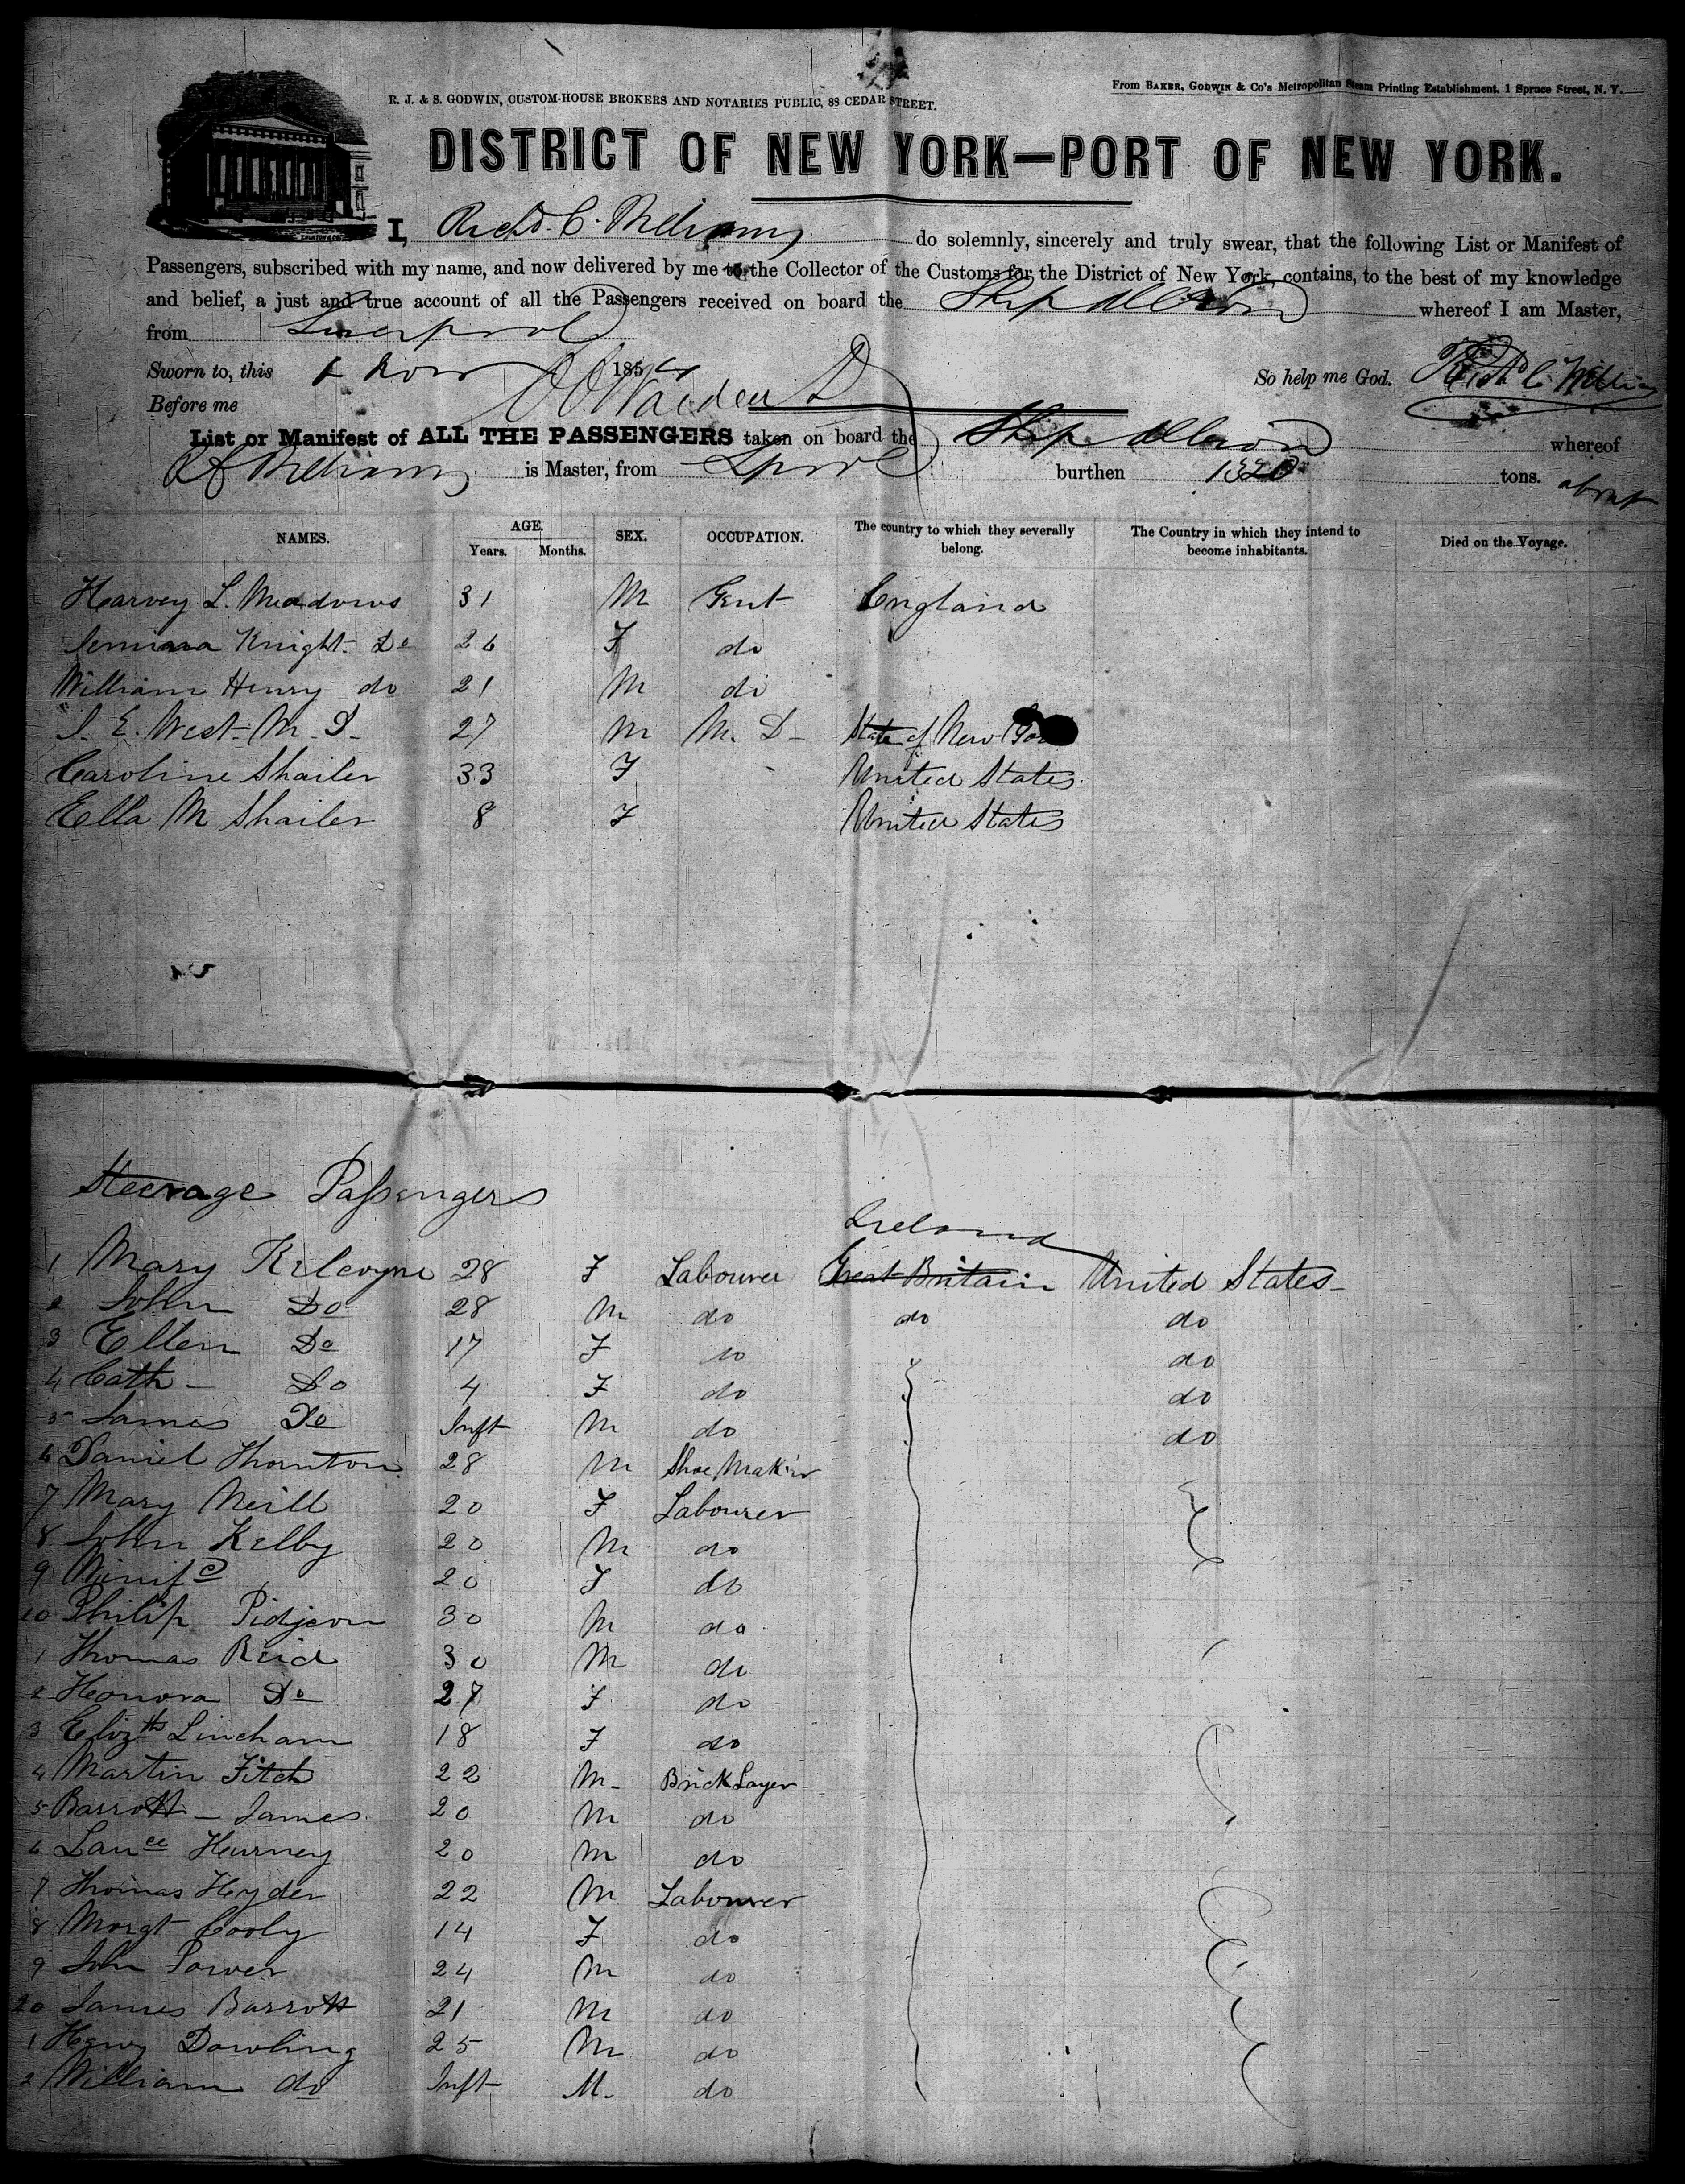 R. J. & S. GODWIN, CUSTOM-HOUSE BROKERS AND NOTARIES PUBLIC, 88 CEDAR STREET.
From BAKER, GODWIN & Co's Metropolitan Steam Printing Establishment, 1 Spruce Street, N. Y.
DISTRICT OF NEW YORK—PORT OF NEW YORK.
I, Richd. C. do solemnly, sincerely and truly swear, that the following List or Manifest of
Passengers, subscribed with my name, and now delivered by me to the Collector of the Customs for the District of New York, contains, to the best of my knowledge
and belief, a just and true account of all the Passengers received on board the Ship Albion whereof I am Master,
from Liverpool
Sworn to, this Nov 1854 So help me God. Richd C
Before me
List or Manifest of ALL THE PASSENGERS taken on board the Ship Albion whereof
is Master, from Lpool burthen 1320 tons. about
NAMES. AGE. SEX. OCCUPATION. The country to which they severally belong. The Country in which they intend to become inhabitants. Died on the Voyage.
Years. Months.
Harvey L. Meadows 31 M Gent England
Knight Do 26 F do
William Henry do 21 M do
E. West M. D 27 M M. D State of New York
Caroline Shailer 33 F United States
Ella M Shailer 8 F United States
Steerage Passengers
Ireland
1 Mary Kilcoyne 28 F Labourer Great Britain United States
2 John Do 28 M do do do
3 Ellen Do 17 F do do
4 Cath Do 4 F do do
5 James Do Inft M do do
6 Daniel Thornton 28 M Shoe Maker
7 Mary Neill 20 F Labourer
8 John Kelby 20 M do
9 Winifd 20 F do
10 Philip Pidjeon 30 M do
1 Thomas Reid 30 M do
2 Honora Do 27 F do
3 Elizth Lincham 18 F do
4 Martin Fitch 22 M Brick Layer
5 Barrott James 20 M do
6 Lance Hurney 20 M do
7 Thomas Hyder 22 M Labourer
8 Margt Cooly 14 F do
9 John Power 24 M do
20 James Barrott 21 M do
1 Henry Dowling 25 M do
2 William do Inft M. do